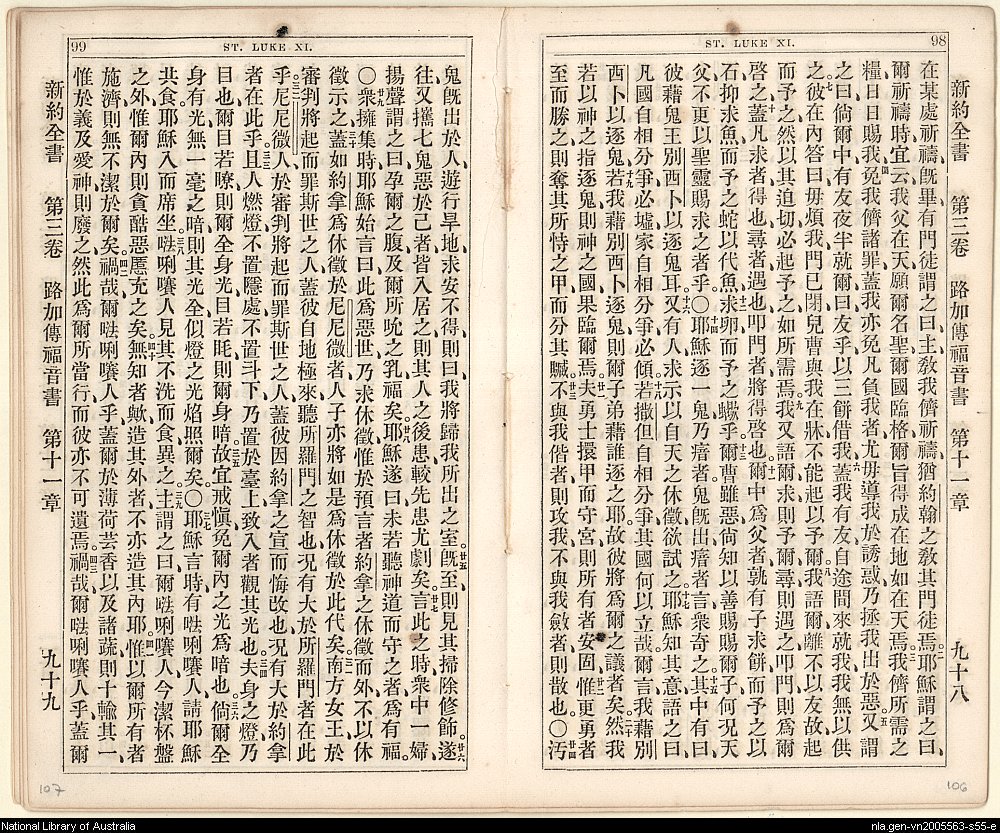 98
ST. LUKE XI.
新約全書 第三卷 路加傳福音書 第十一章 九十八
在某處祈禱、旣畢、有門徒謂之曰、主敎我儕祈禱、猶約翰之敎其門徒焉。二耶穌謂之曰、
爾祈禱時、宜云、我父在天、願爾名聖、爾國臨格、爾旨得成、在地如在天焉。三我儕所需之
糧、日日賜我、四免我儕諸罪、蓋我亦免凡負我者、尤毋導我於誘惑、乃拯我出於惡。五又謂
之曰、倘爾中有友、夜半就爾曰、友乎、以三餅借我、六蓋我有友自途間來就我、我無以供
之、七彼在內答曰、毋煩我、門已閉、兒曹與我在牀、不能起以予爾、八我語爾、雖不以友故起
而予之、然以其迫切、必起予之、如所需焉。九我又語爾、求則予爾、尋則遇之、叩門則爲爾
啓之、十蓋凡求者得也、尋者遇也、叩門者將得啓也。十一爾中爲父者、孰有子求餅而予之以
石、抑求魚而予之蛇以代魚、十二求卵而予之蠍乎、十三爾曹雖惡、尙知以善賜賜爾子、何況天
父、不更以聖靈賜求之者乎。〇十四耶穌逐一鬼、乃瘖者、鬼旣出、瘖者言、衆奇之、十五其中有曰、
彼藉鬼王別西卜以逐鬼耳、十六又有人求示以自天之休徵、欲試之、十七耶穌知其意、語之曰、
凡國自相分爭必墟、家自相分爭必傾、十八若撒但自相分爭、其國何以立哉、爾言我藉別
西卜以逐鬼、十九若我藉別西卜逐鬼、則爾子弟藉誰逐之耶、故彼將爲爾之議者矣、二十然我
若以神之指逐鬼、則神之國果臨爾焉、廿一夫勇士擐甲而守宮、則所有者安固、廿二惟更勇者
至而勝之、則奪其所恃之甲、而分其贓、廿三不與我偕者、則攻我、不與我斂者、則散也。〇廿四汚
106
99
ST. LUKE XI.
鬼旣出於人、遊行旱地、求安不得、則曰、我將歸我所出之室、廿五旣至、則見其掃除修飾。廿六遂
往、又攜七鬼惡於己者、皆入居之、則其人之後患、較先患尤劇矣。廿七言此之時、衆中一婦、
揚聲謂之曰、孕爾之腹、及爾所吮之乳、福矣、廿八耶穌遂曰、未若聽神道而守之者、爲有福。
〇廿九衆擁集時、耶穌始言曰、此爲惡世、乃求休徵、惟於預言者約拿之休徵而外、不以休
徵示之、三十蓋如約拿爲休徵於尼尼微者、人子亦將如是爲休徵於此代矣、三一南方女王、於
審判將起、而罪斯世之人、蓋彼自地極來、聽所羅門之智也、況有大於所羅門者在此
乎、三二尼尼微人、於審判將起、而罪斯世之人、蓋彼因約拿之宣而悔改也、況有大於約拿
者在此乎、三三且人燃燈、不置隱處、不置斗下、乃置於臺上、致入者觀其光也、三四夫身之燈乃
目也、爾目若暸、則爾全身光、目若眊、則爾身暗、三五故宜戒愼、免爾內之光爲暗也、三六倘爾全
身有光、無一毫之暗、則其光全似燈之光焰照爾矣。〇三七耶穌言時、有𠵽唎㘔人、請耶穌
共食、耶穌入而席坐、三八𠵽唎㘔人見其不洗而食、異之、三九主謂之曰、爾𠵽唎㘔人、今潔杯盤
之外、惟爾內則貪酷惡慝充之矣、四十無知者歟、造其外者、不亦造其內耶、四一惟以爾所有者
施濟、則無不潔於爾矣。四二禍哉爾𠵽唎㘔人乎、蓋爾於薄荷芸香、以及諸蔬、則十輸其一、
惟於義及愛神、則廢之、然此爲爾所當行、而彼亦不可遺焉。四三禍哉爾𠵽唎㘔人乎、蓋爾
新約全書 第三卷 路加傳福音書 第十一章 九十九
107
National Library of Australia
nla.gen-vn2005563-s55-e